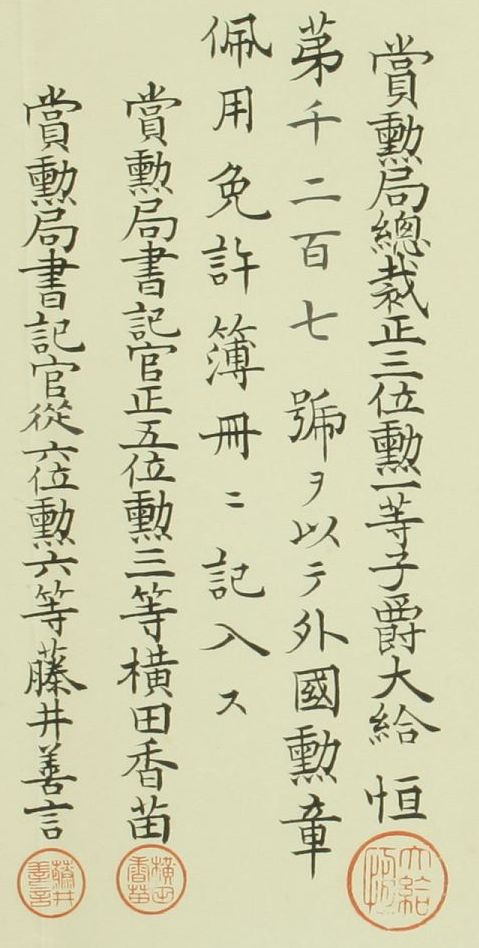 賞勲局總裁正三位勲一等子爵大給恒
第千二百七號ヲ以テ外國勲章
佩用免許簿冊ニ記入ス
賞勲局書記官正五位勲三等横田香苗
賞勲局書記官從六位勲六等藤井善言
大給恒
横田香苗
藤井善言